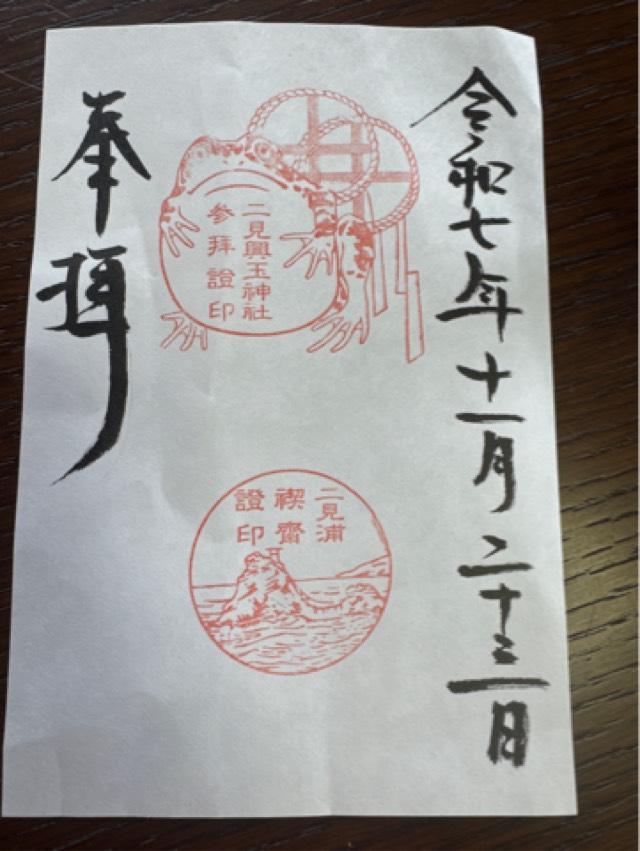 令和七年十一月二十三日
二見興玉神社
参拜證印
二見浦
禊齋
證印
奉拝